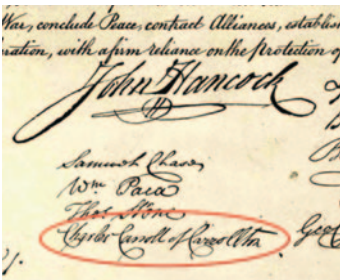 War, conclude Peace, contract Alliances, establish
ration, with a firm reliance on the Protection of
John Hancock
Samuel Chase
Wm. Paca
Thos. Stone
Charles Carroll of Carrollton
Geo